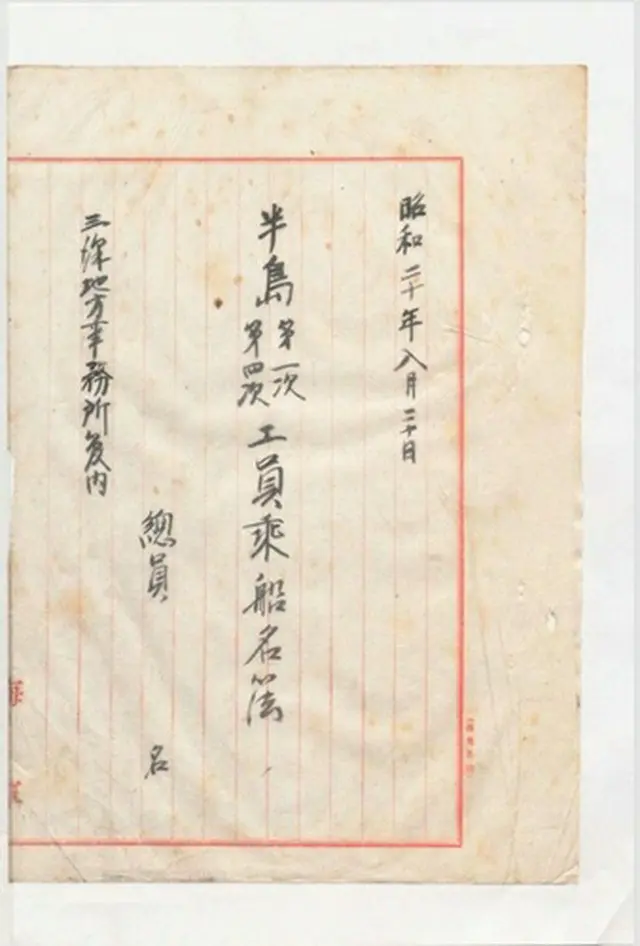 昭和二十年八月二十日
半島 第一次
第四次 工員乗船名簿
総員 名
地方事務所
内
海